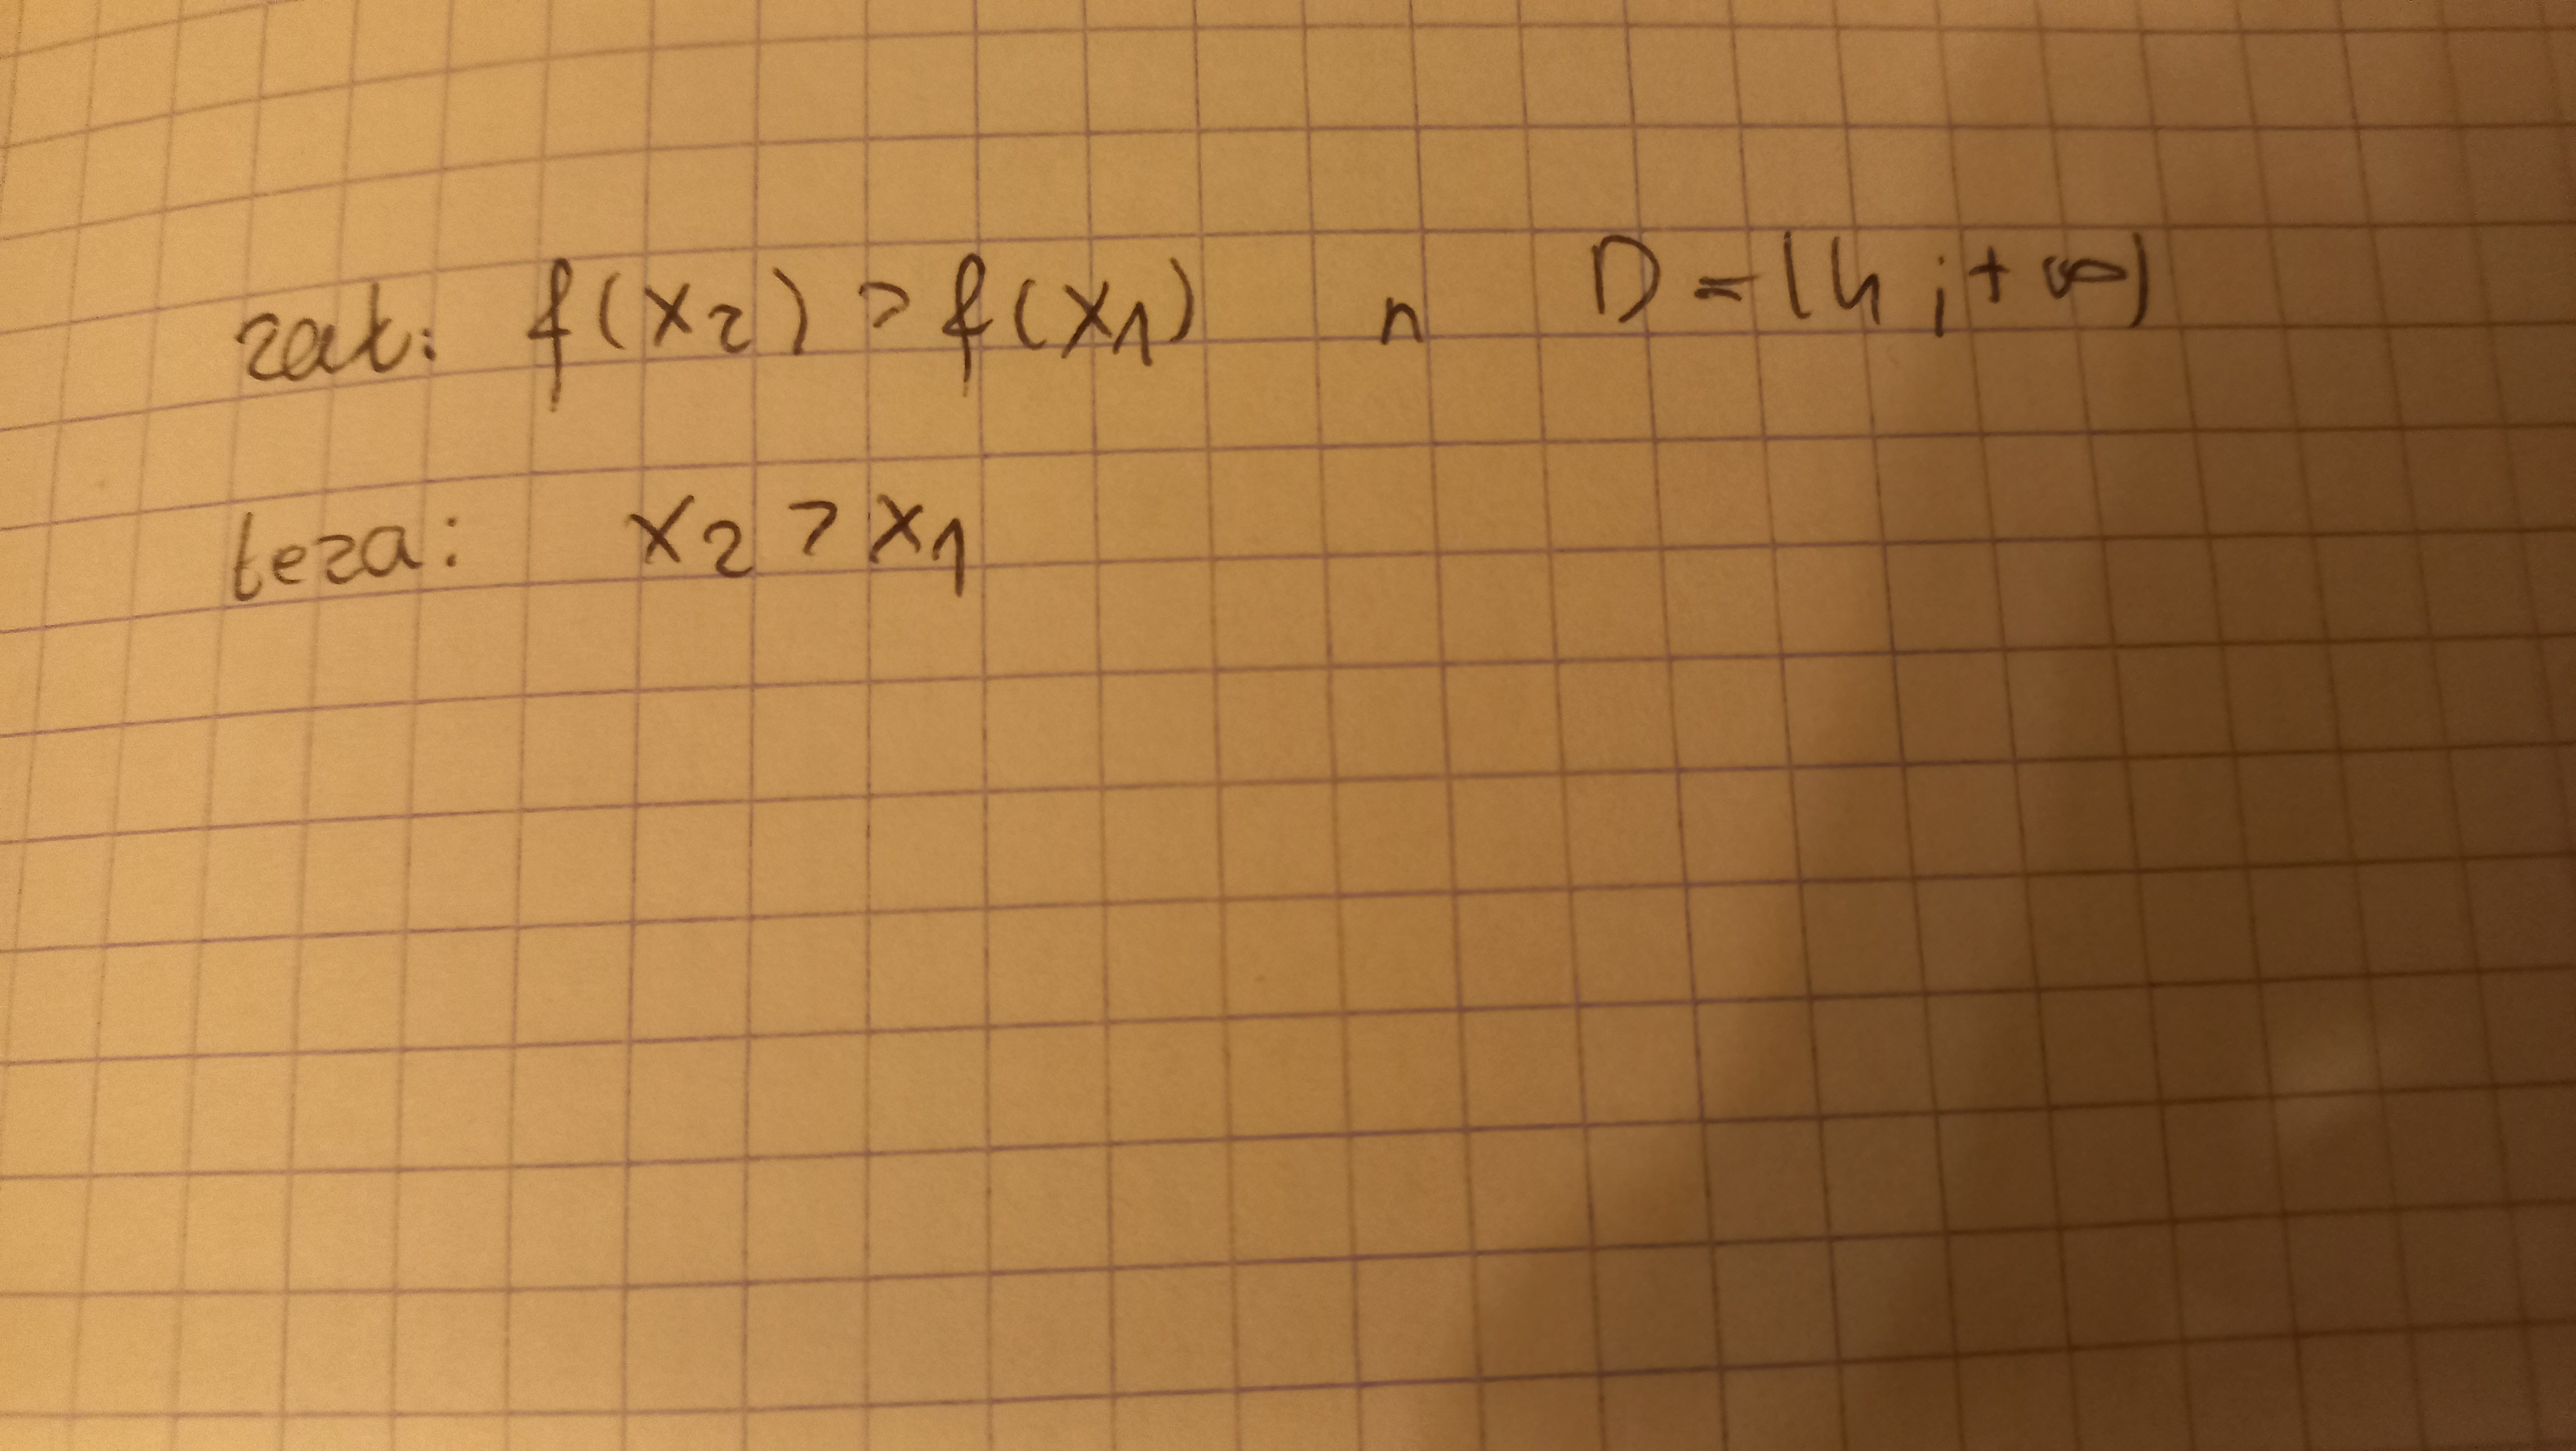 zał: f(x₂) > f(x₁) n D = (4 ; + ∞)
teza: x₂ > x₁